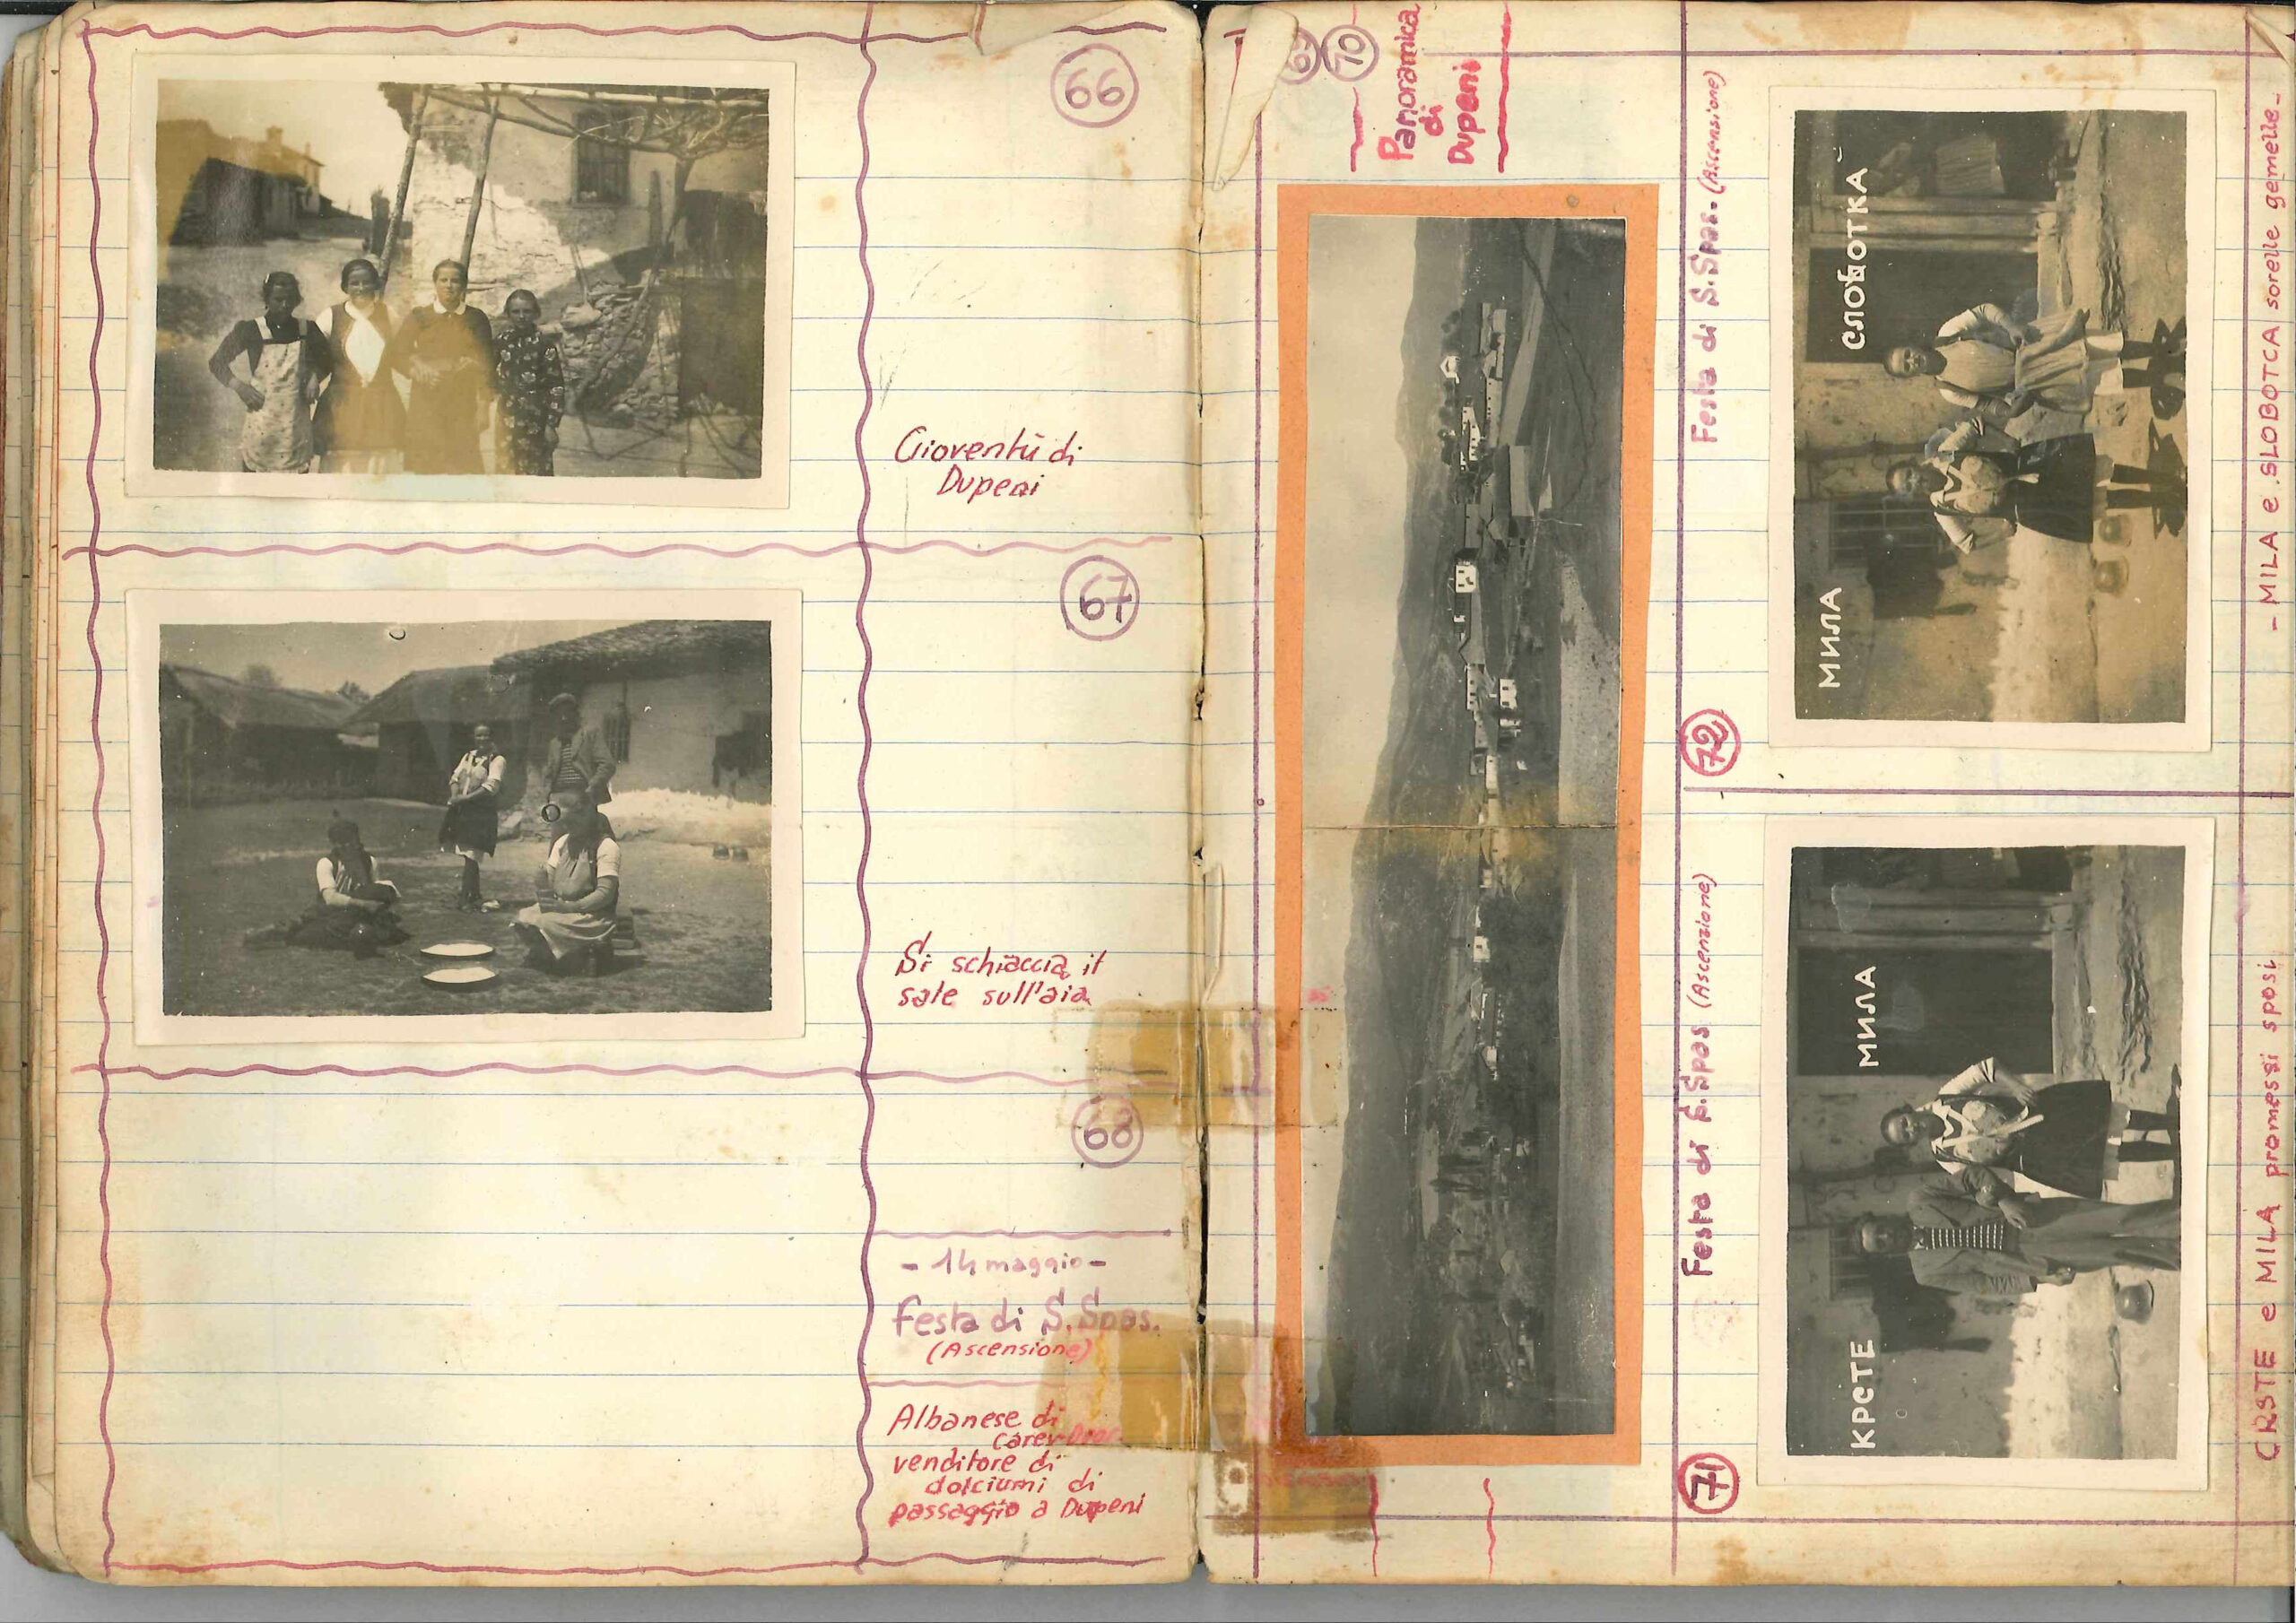 66
Gioventù di
Dupeni
67
Si schiaccia il
sale sull'aia
68
- 14 maggio -
Festa di S. Spas.
(Ascensione)
Albanese di
Carev-Dvor
venditore di
dolciumi di
passaggio a Dupeni
69 70
Panoramica
di
Dupeni
71
Festa di S. Spas (Ascenzione)
КРСТЕ
МИЛА
CRSTE e MILA promessi sposi
72
Festa di S. Spas. (Ascensione)
МИЛА
СЛОБОТКА
- MILA e SLOBOTCA sorelle gemelle -